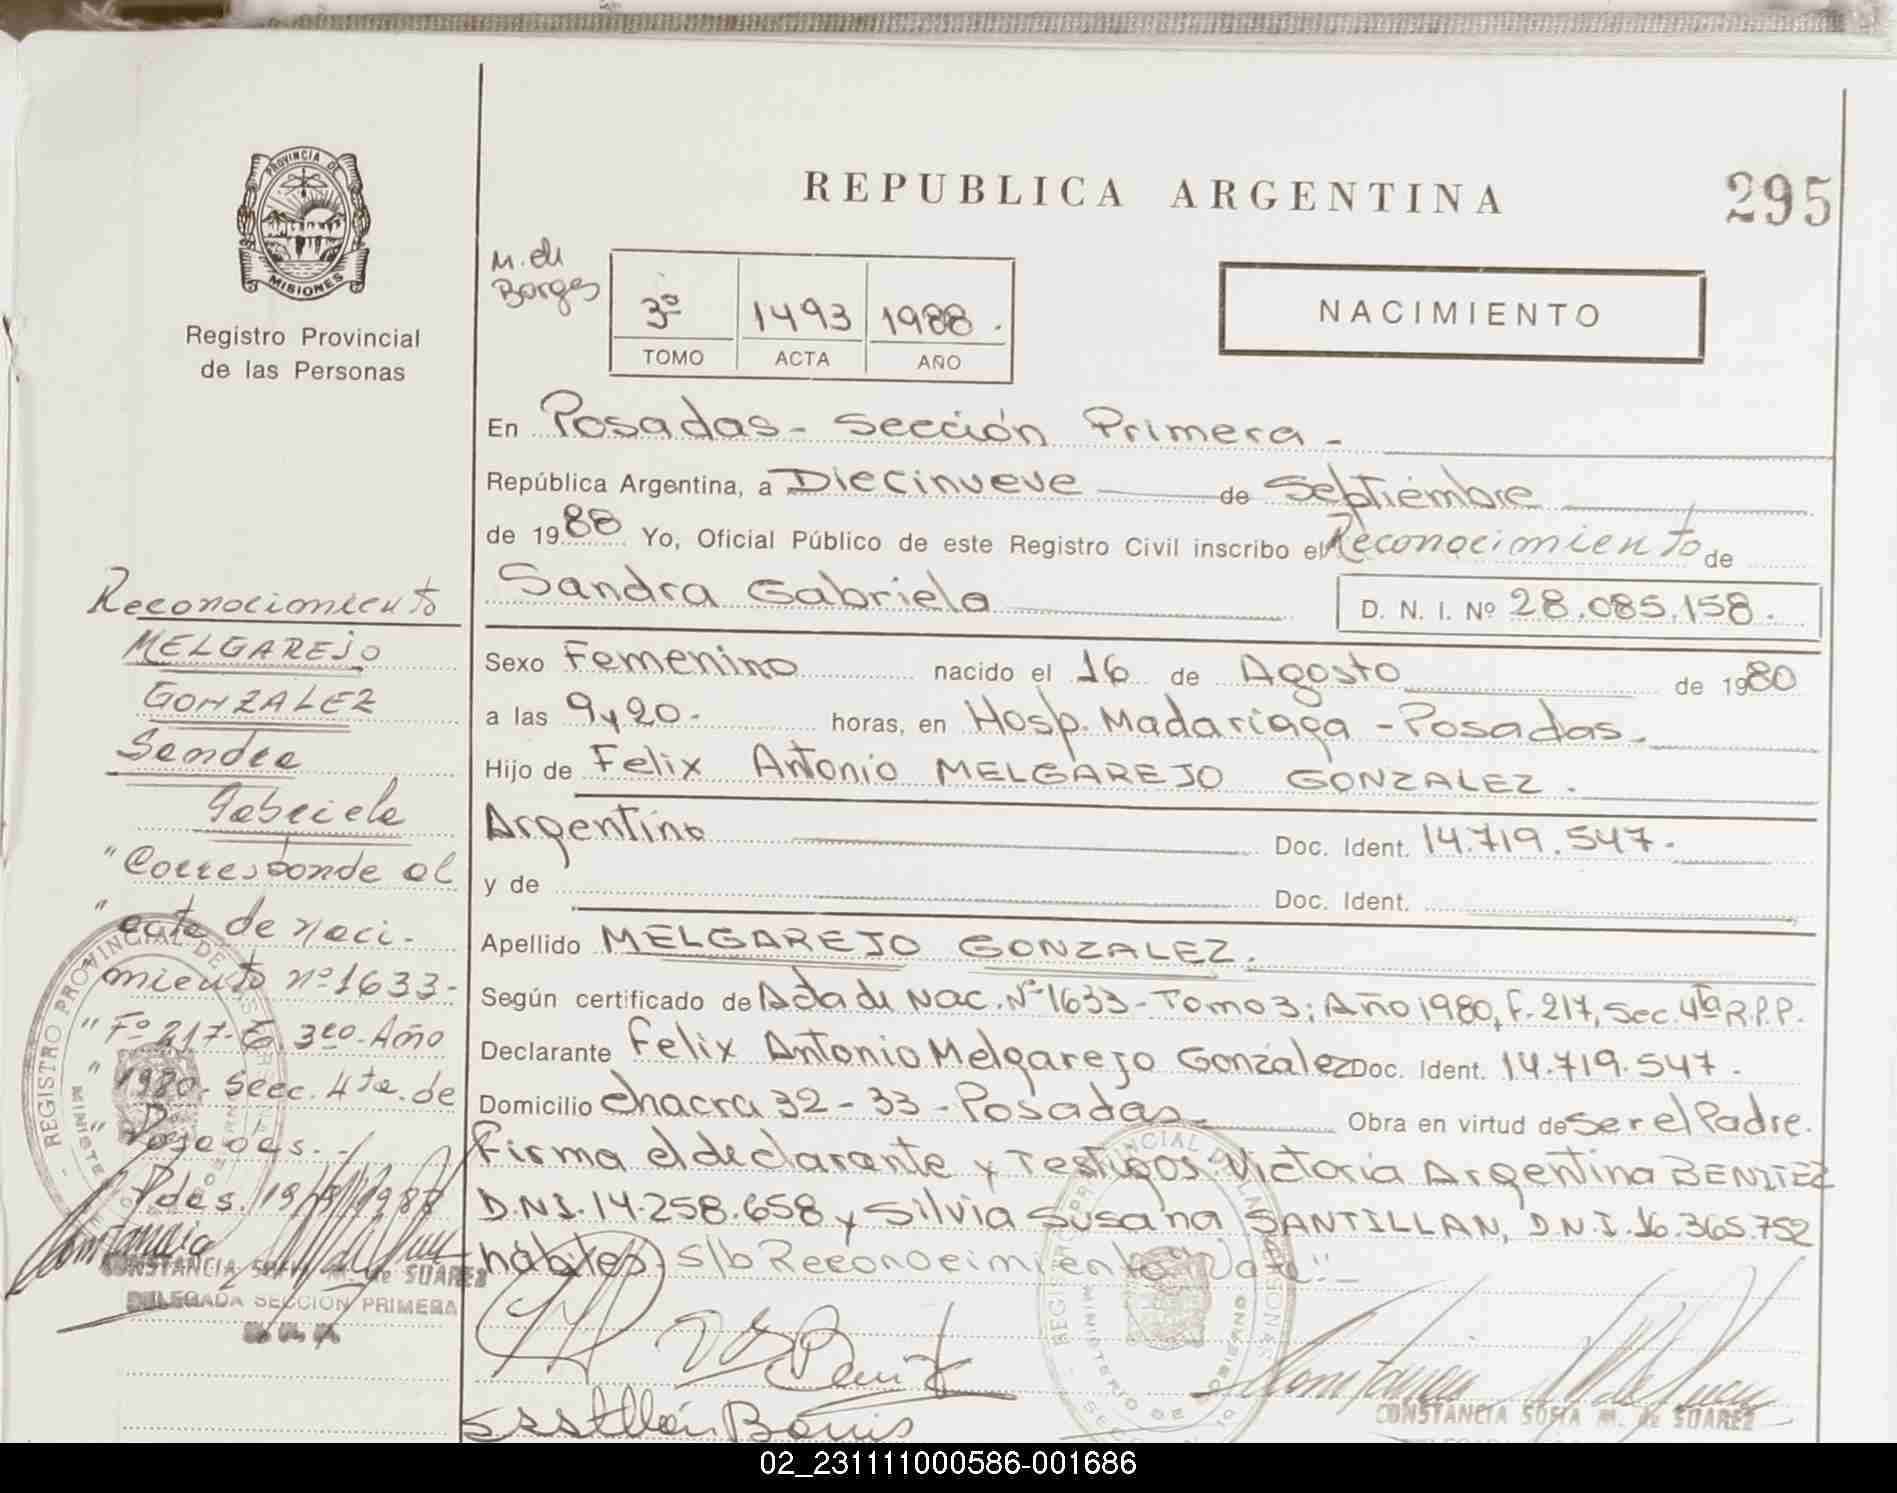 PROVINCIA DE
MISIONES
Registro Provincial
de las Personas
REPUBLICA ARGENTINA
295
M. de
Borges
3º 1493 1988.
TOMO ACTA AÑO
NACIMIENTO
En Posadas - Sección Primera -
República Argentina, a Diecinueve de Septiembre
de 1988 Yo, Oficial Público de este Registro Civil inscribo el Reconocimiento de
Sandra Gabriela D. N. I. Nº 28.085.158.
Sexo Femenino nacido el 16 de Agosto de 1980
a las 9y20- horas, en Hosp. Madariaga - Posadas.
Hijo de Felix Antonio MELGAREJO GONZALEZ.
Argentino Doc. Ident. 14.719.547.
y de Doc. Ident.
Apellido MELGAREJO GONZALEZ.
Según certificado de Acta de Nac. Nº 1633- Tomo 3; Año 1980, f. 217, Sec. 4ta R.P.P.
Declarante Felix Antonio Melgarejo Gonzalez Doc. Ident. 14.719.547.
Domicilio Chacra 32-33 - Posadas. Obra en virtud de Ser el Padre.
Firma el declarante y Testigos: Victoria Argentina BENITEZ
D.N.I. 14.258.658 y Silvia Susana SANTILLAN, D.N.I. 16.365.752
hábiles. s/b Reconocimiento "Vale"-
CONSTANCIA SOFIA M. de SUAREZ
Reconocimiento
MELGAREJO
GONZALEZ
Sandra
Gabriela
"Corresponde al
" acta de naci-
miento nº 1633-
" Fº 217- Tº 3ro- Año
" 1980- Secc. 4ta. de
" Posadas.-
Pdas. 19/9/1988
CONSTANCIA SOFIA M. de SUAREZ
DELEGADA SECCION PRIMERA
REGISTRO PROVINCIAL DE LAS
02_231111000586-001686